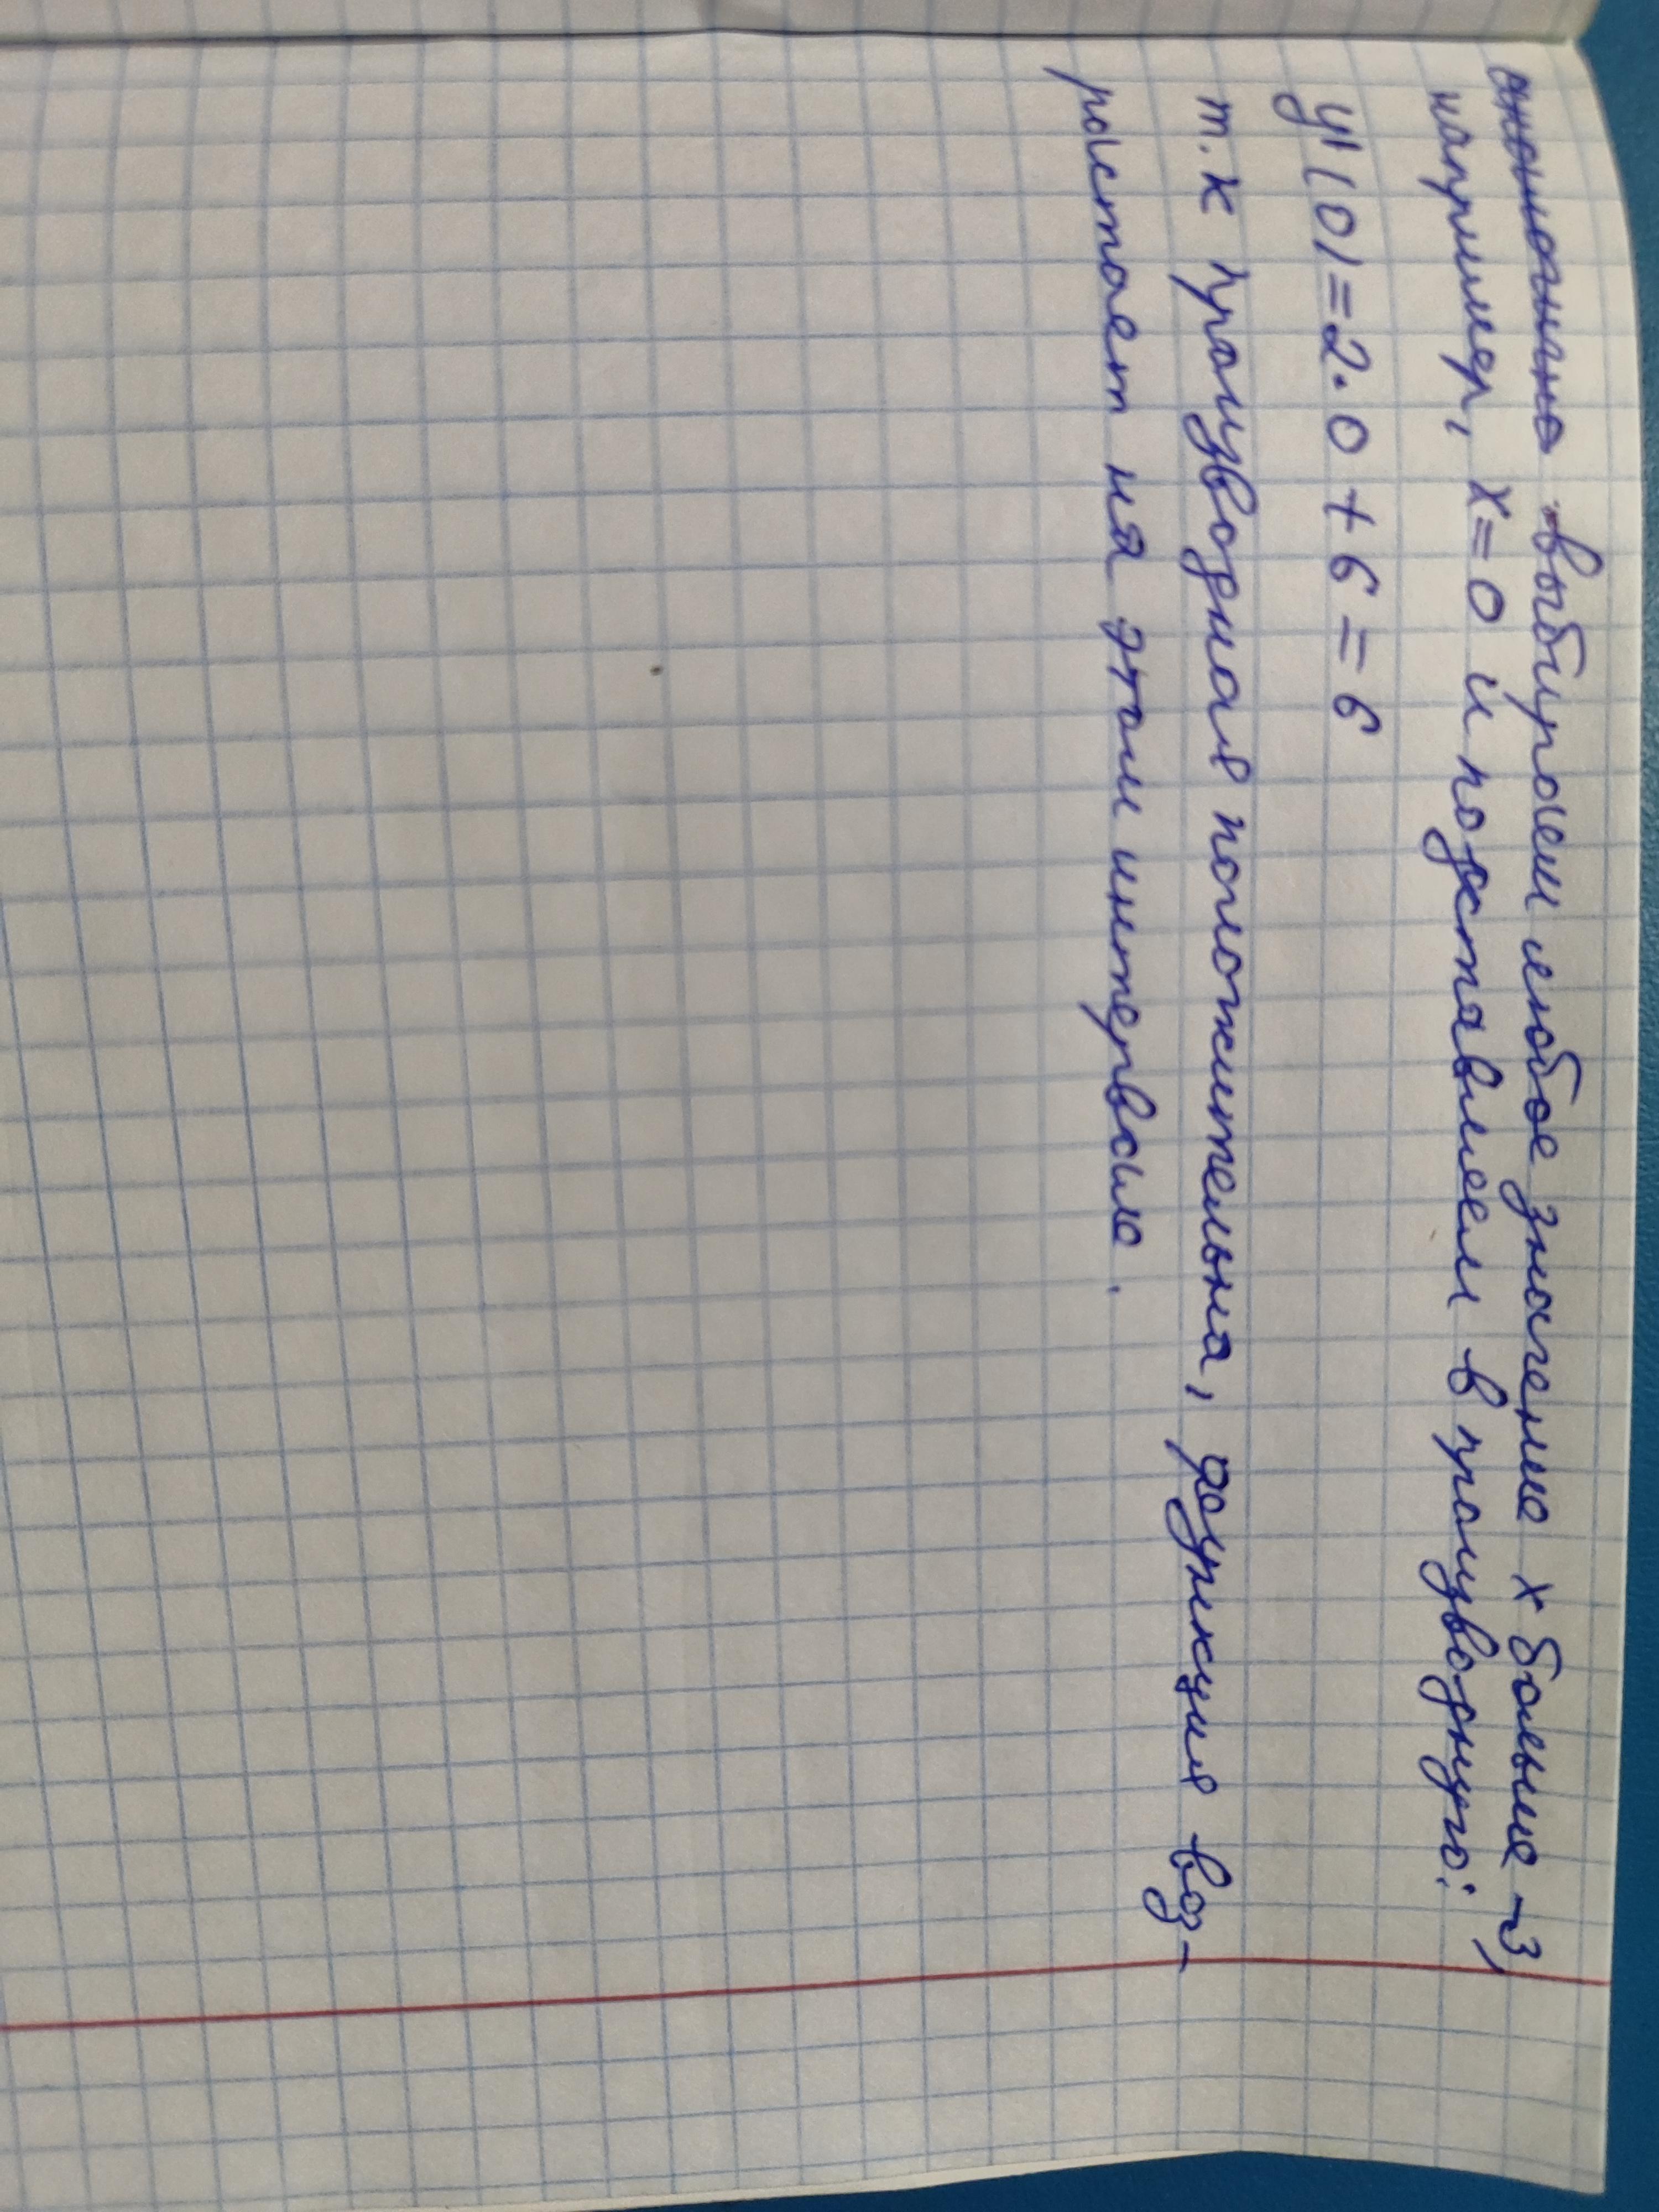 аналогично выбираем любое значение х больше -3,
например, х=0 и подставляем в производную:
y'(0)=2·0+6=6
т.к производная положительна, функция воз-
растает на этом интервале.